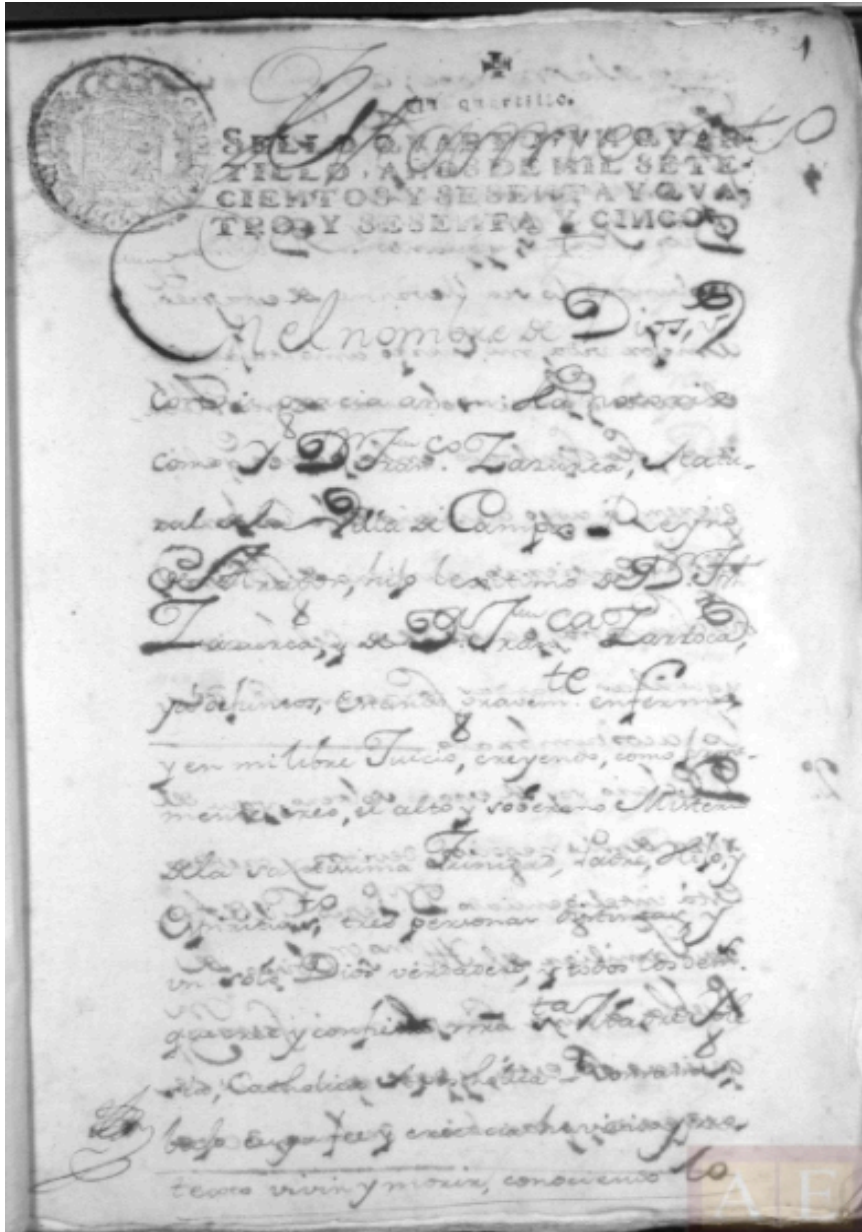 1
Un quartillo.
Testamento
SELLO QUARTO, UN QVAR-
TILLO, AÑOS DE MIL SETE-
CIENTOS Y SESENTA Y QVA-
TRO, Y SESENTA Y CINCO.
En el nombre de Dios, y
con su gracia amen:
como yo Dn. Franco. Zarurca, Natu-
ral de la Villa de Campo Reyno
de Aragon, hijo lexitimo de Dn.
y de Da. Franca.
ya defuntos, estando gravemte. enfermo
y en mi libre Juicio, creyendo, como
mente creo, el alto y soberano Misterio
de la Trinidad, Padre, Hijo, y
Espiritu Sto. tres personas distintas, y
un solo Dios verdadero, y todos los demas.
que cree y confiesa nra Sta.
Catholica
bajo cuya fee y creencia he vivido y pro-
texto vivir y morir, conociendo lo
AE